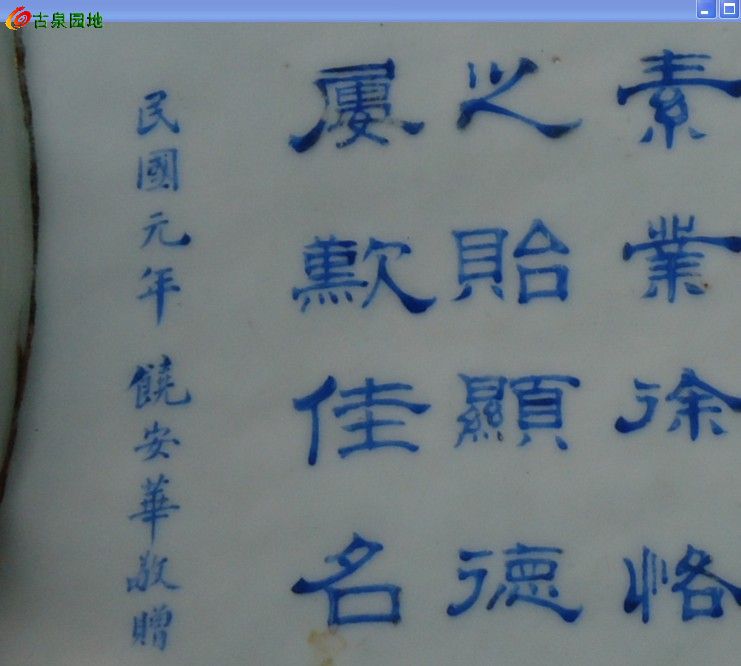 古泉园地
素業徐恪
之貽顯德
屢歎佳名
民國元年 饒安華敬贈